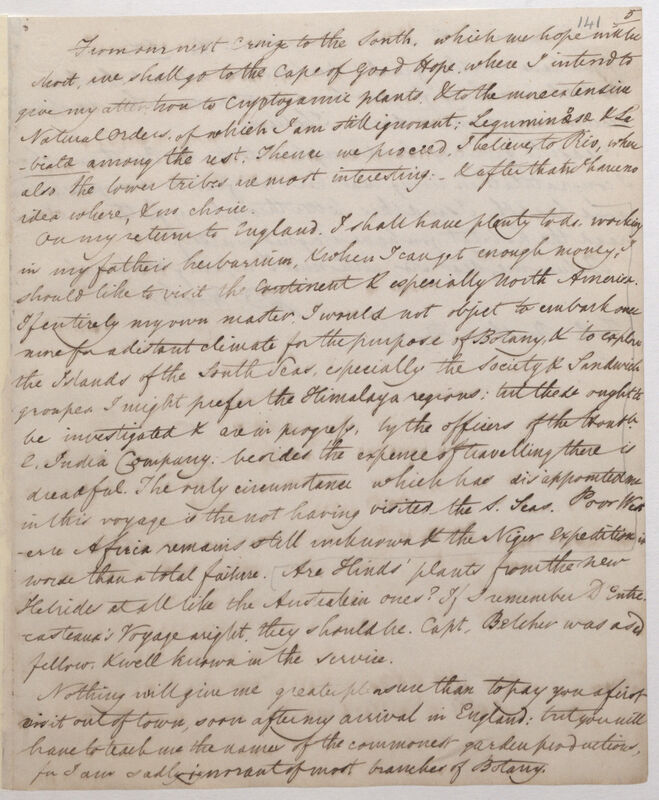 141 5
From our next cruize to the South, which we hope will be
short, we shall go to the Cape of Good Hope, where I intend to
give my attention to Cryptogamic plants, & to the more extensive
Natural Orders, of which I am still ignorant; Leguminosæ & La-
-biatæ among the rest. Thence we proceed, I believe, to Rio, where
also the lower tribes are most interesting; - & after that I have no
idea where, & no choice.
On my return to England, I shall have plenty to do, working
in my father's herbarium, & when I can get enough money, I
should like to visit the Continent & especially North America.
If entirely my own master, I would not object to embark once
more for a distant climate for the purpose of Botany, & to explore
the Islands of the South Seas, especially the Society & Sandwich
groupes. I might prefer the Himalaya regions; but these ought to
be investigated & are in progress, by the officers of the Honble
E. India Company: besides the expence of travelling there is
dreadful. The only circumstance which has disappointed me
in this voyage is the not having visited the S. Seas. Poor West-
-ern Africa remains still unknown & the Niger Expedition is
worse than a total failure. Are Hinds' plants from the New
Hebrides at all like the Australian ones? If I remember D'Entre-
casteaux's Voyage aright, they should be. Capt. Belcher was a sad
fellow, & well known in the service.
Nothing will give me greater pleasure than to pay you a first
visit out of town, soon after my arrival in England; but you will
have to teach me the names of the commonest garden productions,
for I am sadly ignorant of most branches of Botany.